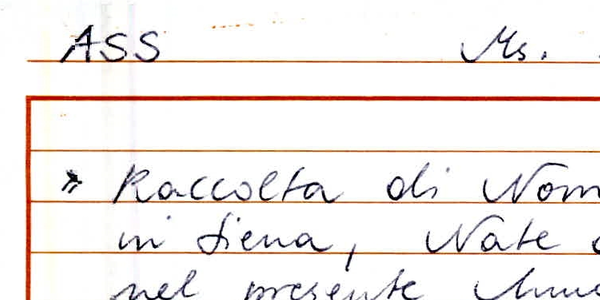 ASS Ms.
» Raccolta di Nom
in Siena, Nate
nel presente